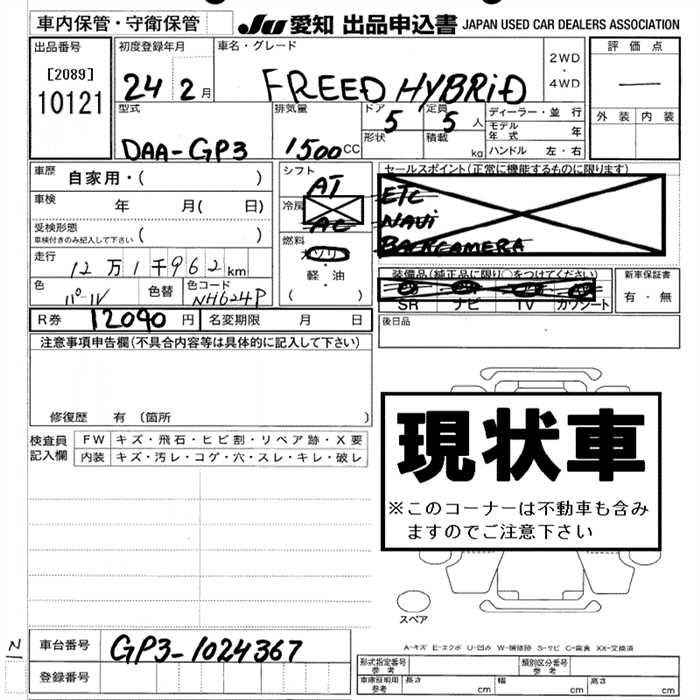 車内保管・守衛保管
JU 愛知 出品申込書 JAPAN USED CAR DEALERS ASSOCIATION
出品番号
[2089]
10121
初度登録年月
24 2月
車名・グレード
FREED HYBRID
2WD
・
4WD
評価点
—
外装 内装
型式
DAA-GP3
排気量
1500CC
ドア
5
形状
定員
5人
積載
kg
ディーラー・並行
モデル年式 年
ハンドル 左・右
車歴 自家用・( )
車検 年 月( 日)
受検形態
車検付きのみ記入して下さい ( )
走行 12万1千962km
色
色替
色コード
NH624P
シフト
AT
冷房
AC
燃料
ガソリン
軽・油
( )
セールスポイント(正常に機能するものに限ります)
ETC
NAVi
BACKCAMERA
装備品(純正品に限り○をつけてください)
SR ナビ TV カワシート
新車保証書
有・無
R券 12090円
名変期限 月 日
後日品
注意事項申告欄(不具合内容等は具体的に記入して下さい)
修復歴 有(箇所 )
検査員記入欄
FW キズ・飛石・ヒビ割・リペア跡・X要
内装 キズ・汚レ・コゲ・穴・スレ・キレ・破レ
現状車
※このコーナーは不動車も含み
ますのでご注意下さい
スペア
N
車台番号 GP3-1024367
登録番号
A-キズ E-エクボ U-凹み W-補修跡 S-サビ C-腐食 XX-交換済
形式指定番号
参考
類別区分番号
参考
車庫証明用
参考
長さ cm
幅 cm
高さ cm